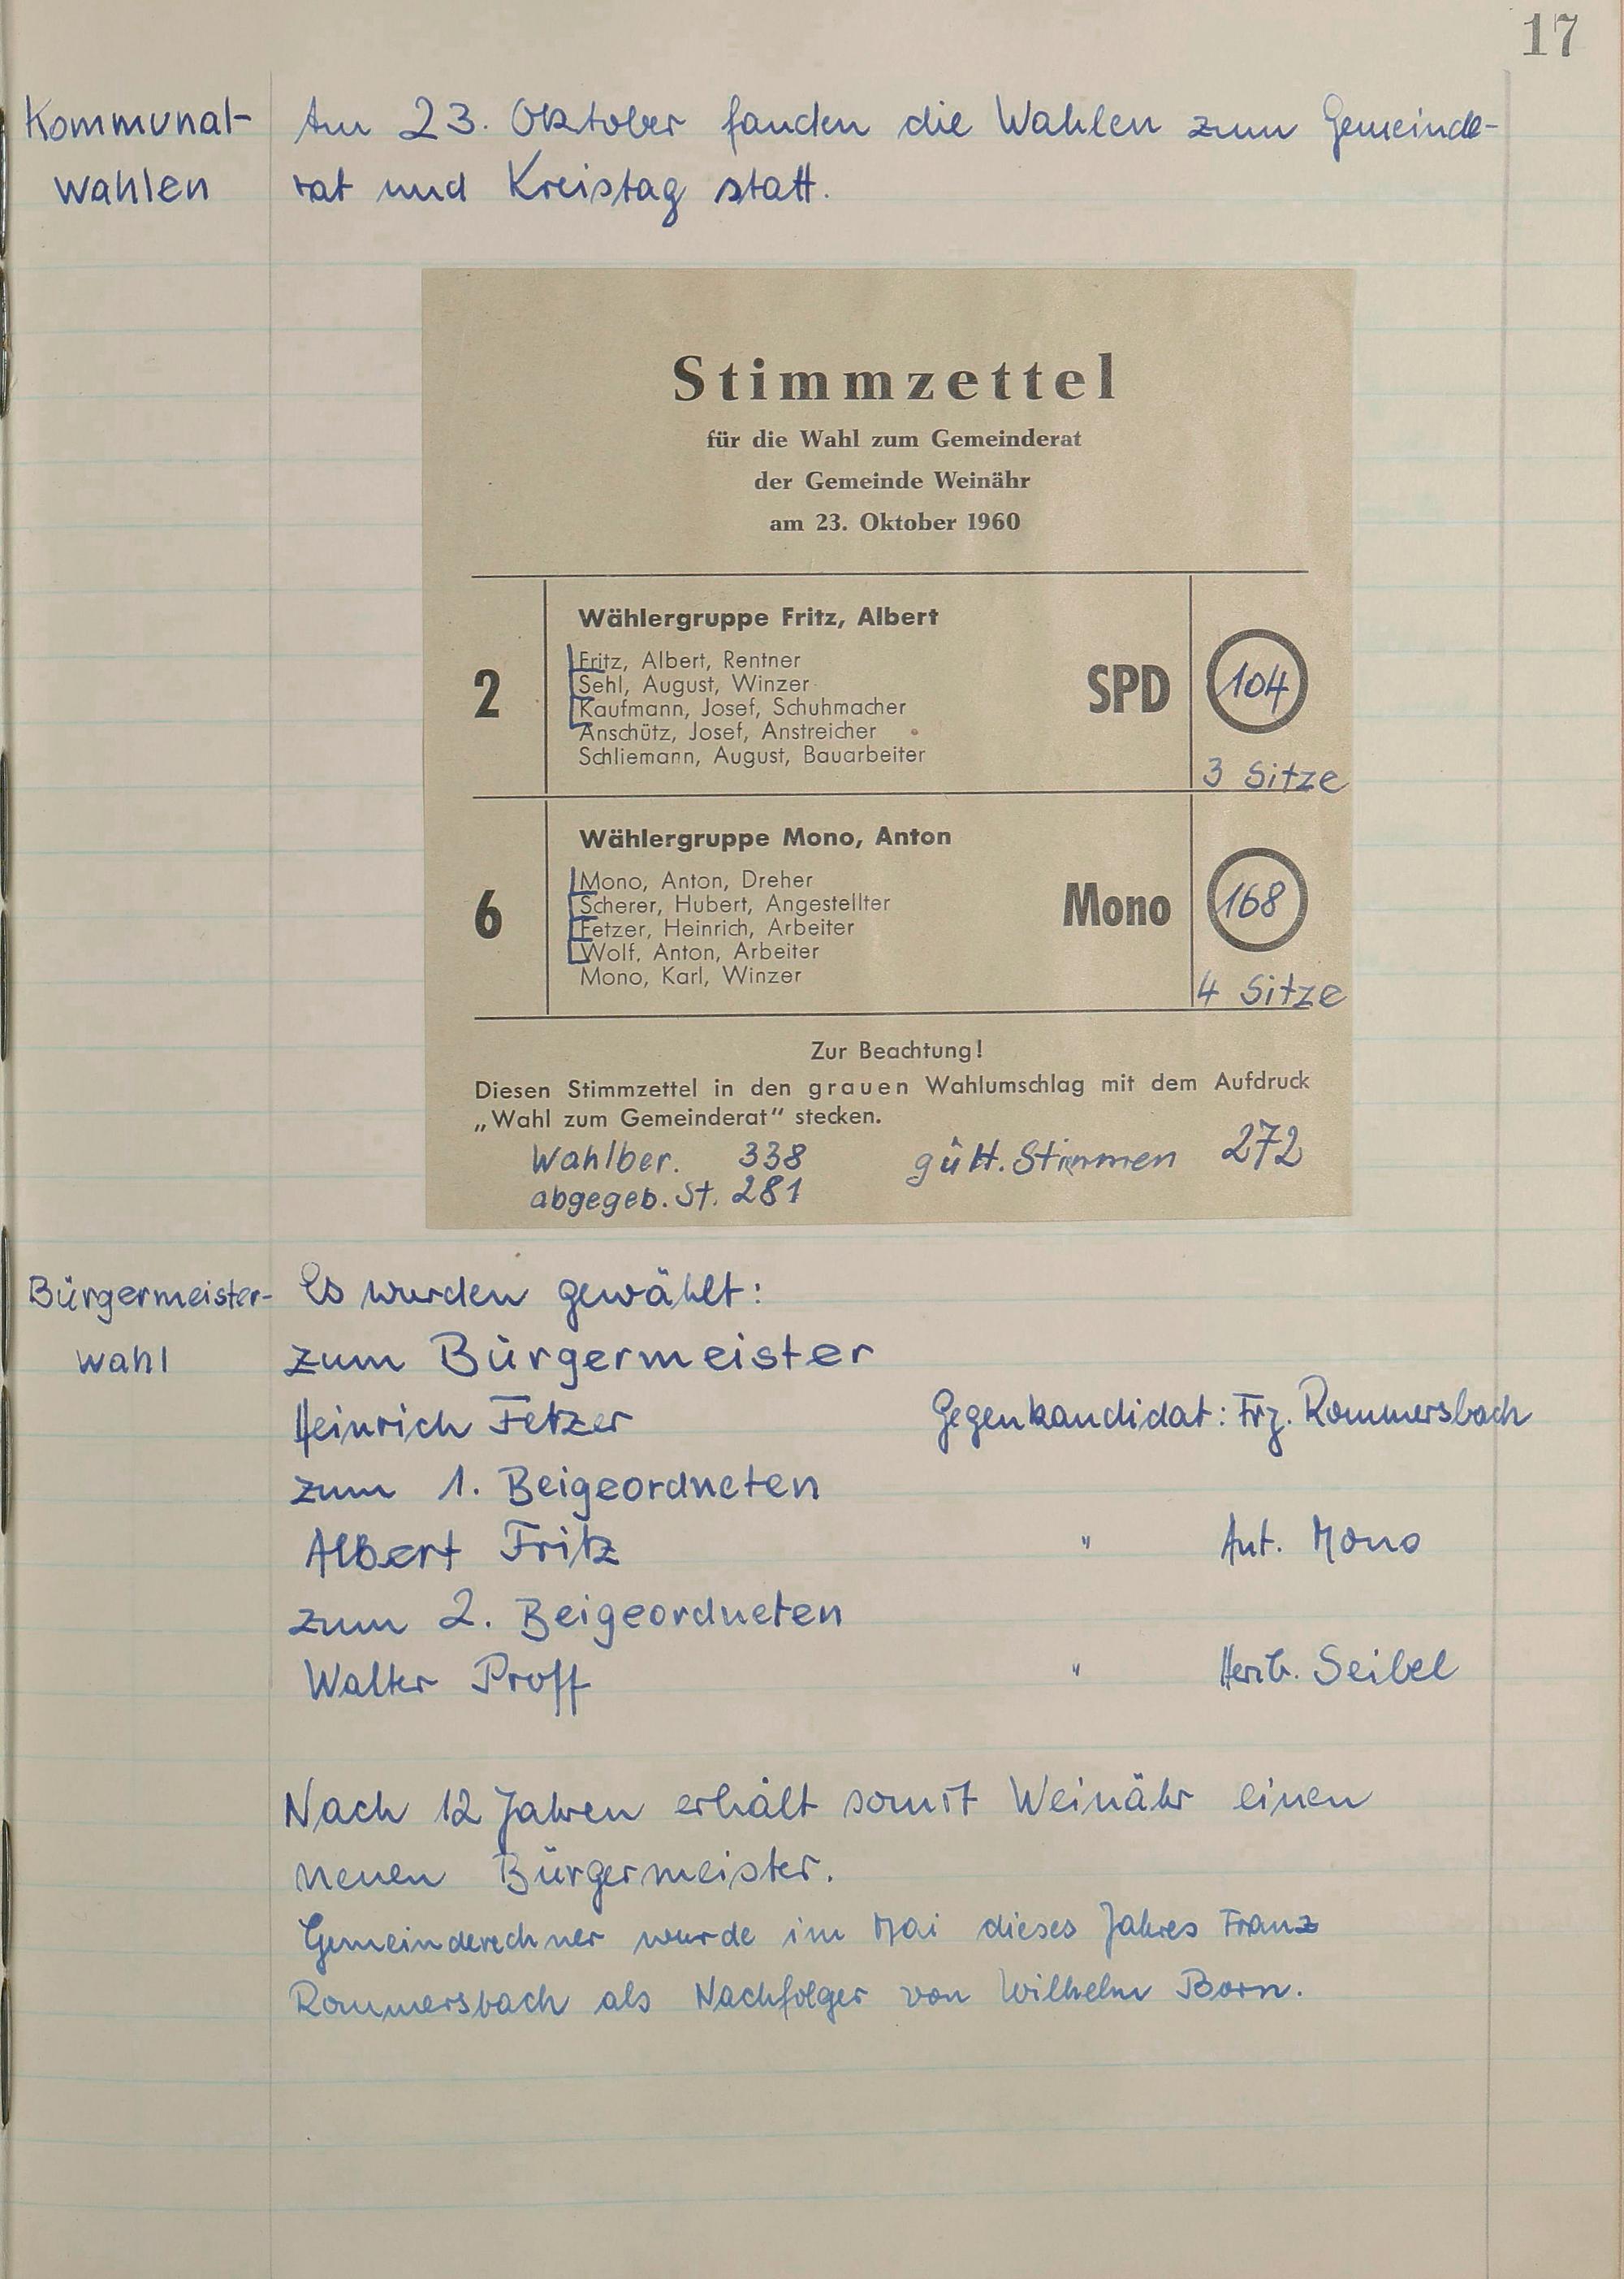 17
Kommunal-
wahlen
Am 23. Oktober fanden die Wahlen zum Gemeinde-
rat und Kreistag statt.
Stimmzettel
für die Wahl zum Gemeinderat
der Gemeinde Weinähr
am 23. Oktober 1960
2
Wählergruppe Fritz, Albert
Fritz, Albert, Rentner
Sehl, August, Winzer
Kaufmann, Josef, Schuhmacher
Anschütz, Josef, Anstreicher
Schliemann, August, Bauarbeiter
SPD
104
3 Sitze
6
Wählergruppe Mono, Anton
Mono, Anton, Dreher
Scherer, Hubert, Angestellter
Fetzer, Heinrich, Arbeiter
Wolf, Anton, Arbeiter
Mono, Karl, Winzer
Mono
168
4 Sitze
Zur Beachtung!
Diesen Stimmzettel in den grauen Wahlumschlag mit dem Aufdruck
„Wahl zum Gemeinderat" stecken.
Wahlber. 338 gült. Stimmen 272
abgegeb. St. 281
Bürgermeister-
wahl
Es wurden gewählt:
zum Bürgermeister
Heinrich Fetzer Gegenkandidat: Frz. Rommersbach
zum 1. Beigeordneten
Albert Fritz " Ant. Mono
zum 2. Beigeordneten
Walter Proff " Herib. Seibel
Nach 12 Jahren erhält somit Weinähr einen
neuen Bürgermeister.
Gemeinderechner wurde im Mai dieses Jahres Franz
Rommersbach als Nachfolger von Wilhelm Born.